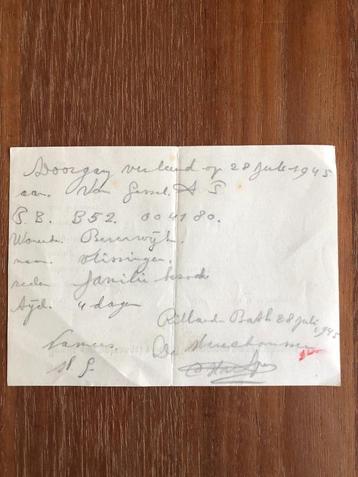 Doorgang verleend op 28 Juli 1945
aan. Van Gessel A P
P. B. B52. 004180.
Wonend. Beverwijk.
naar. Vlissingen.
reden familie bezoek
tijd. 4 dagen
Rilland Bath 28 Juli
1945
Namens De
M G.